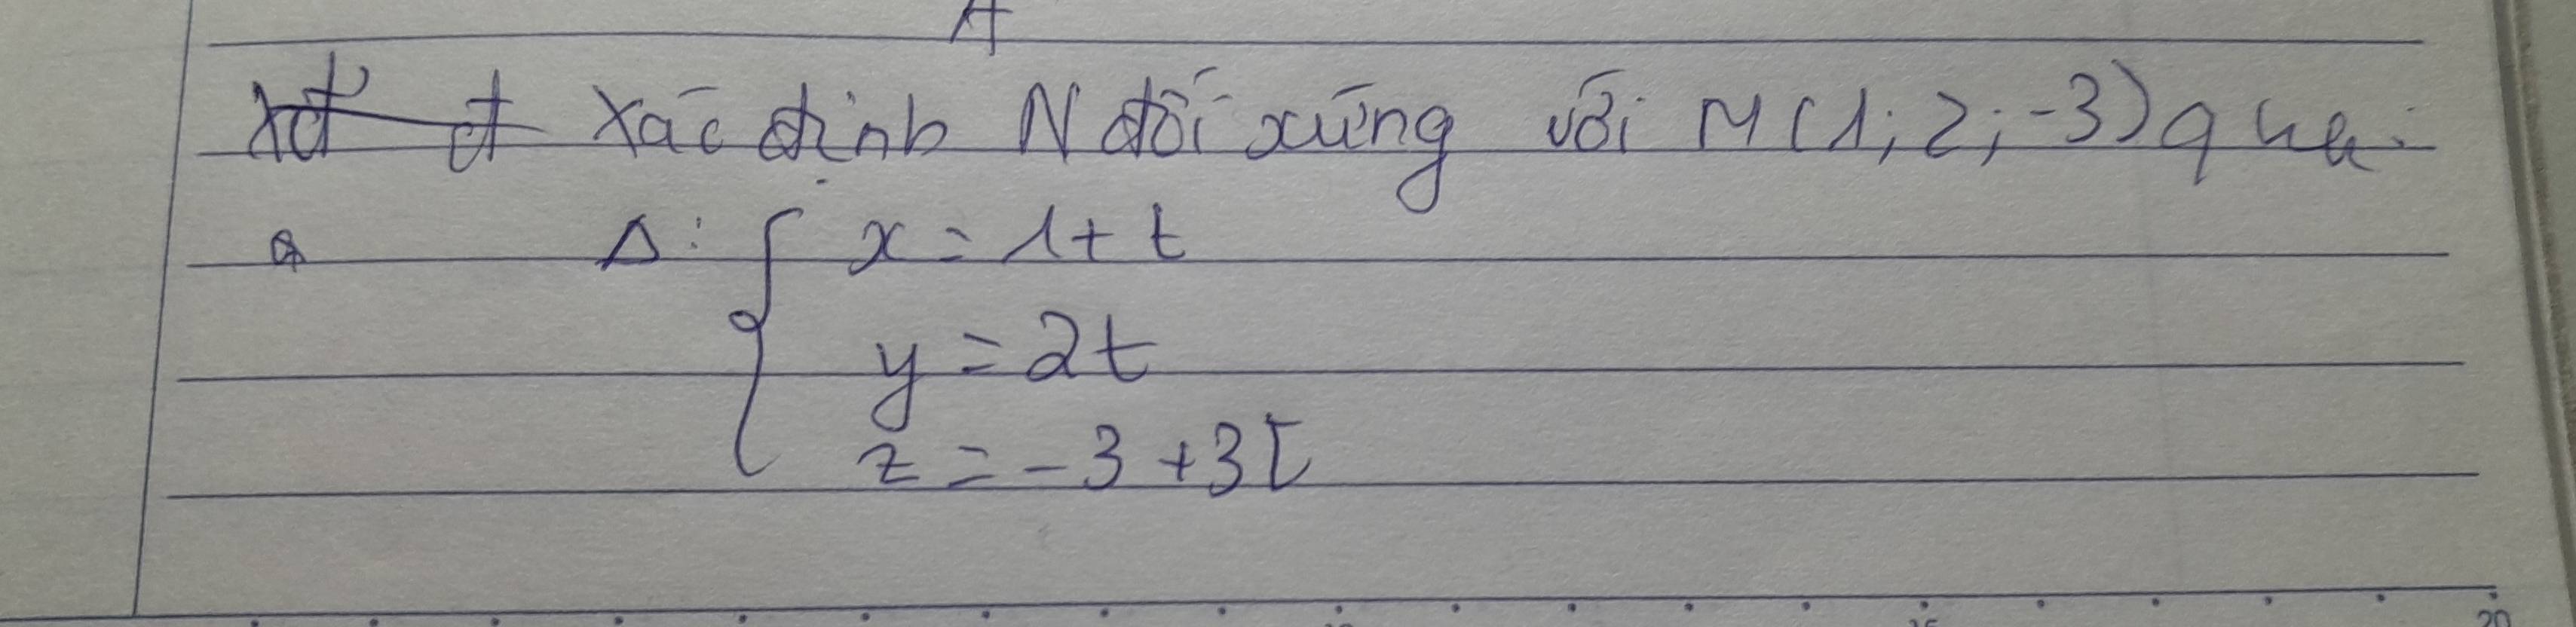 A
Xác định N đối xứng với M(1; 2; -3) qua:
a Δ: { x = 1 + t
y = 2t
z = -3 + 3t
15 20